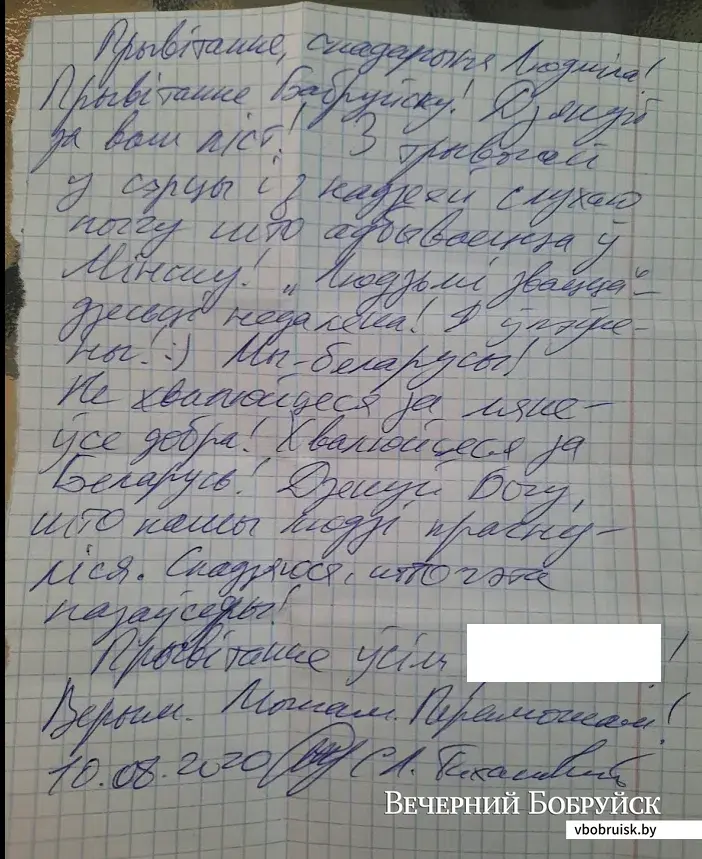 Прывітанне, спадарыня Людміла!
Прывітанне Бабруйску! Дзякуй
за ваш ліст! З трывогай
у сэрцы і з надзеяй слухаю
пошту што адбываецца ў
Мінску! „Людзьмі звацца“ –
недалёка! Я ўпэўне-
ны! :) Мы – беларусы!
Не хвалюйцеся за мяне –
ўсе добра! Хвалюйцеся за
Беларусь! Дзякуй Богу,
што нашы людзі прачну-
ліся. Спадзяюся, што гэта
назаўсёды!
Прывітанне ўсім !
Верым. Можам. Пераможам!
10.08.2020 С.Л. Тіхановскі
ВЕЧЕРНИЙ БОБРУЙСК
vbobruisk.by